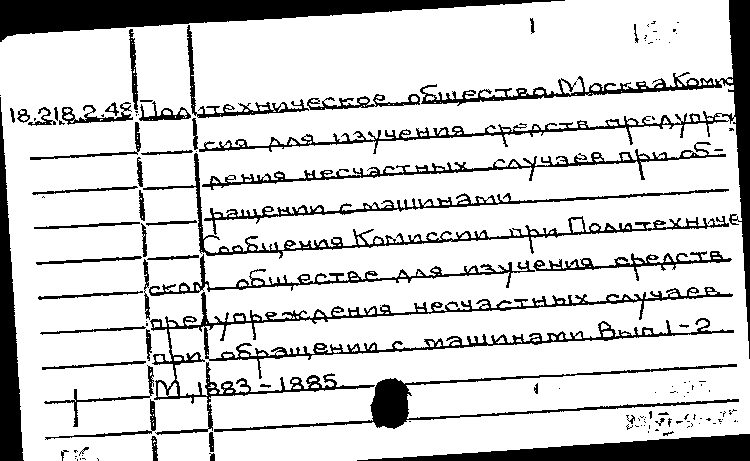 18.218.2.48 Политехническое общество. Москва. Комис
сия для изучения средств предупреж
дения несчастных случаев при об-
ращении с машинами
Сообщения Комиссии при Политехниче
ском обществе для изучения средств
предупреждения несчастных случаев
при обращении с машинами. Вып. 1-2.
М., 1883-1885.